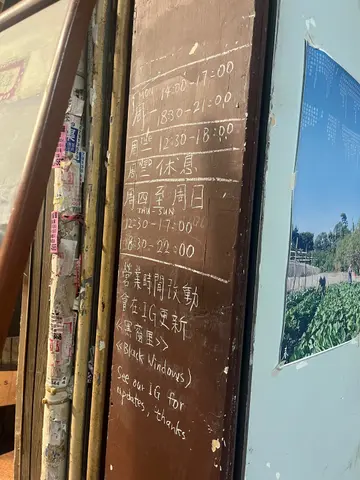 MON 14:00-17:00
周一 1830-21:00
周二 12:30-18:00
周三 休息
周四至周日
THU-SUN
12:30-17:00
18:30-22:00
營業時間改動
會在IG更新
<<黑窗里>>
<<Black Windows>
See our IG for
updates, thanks